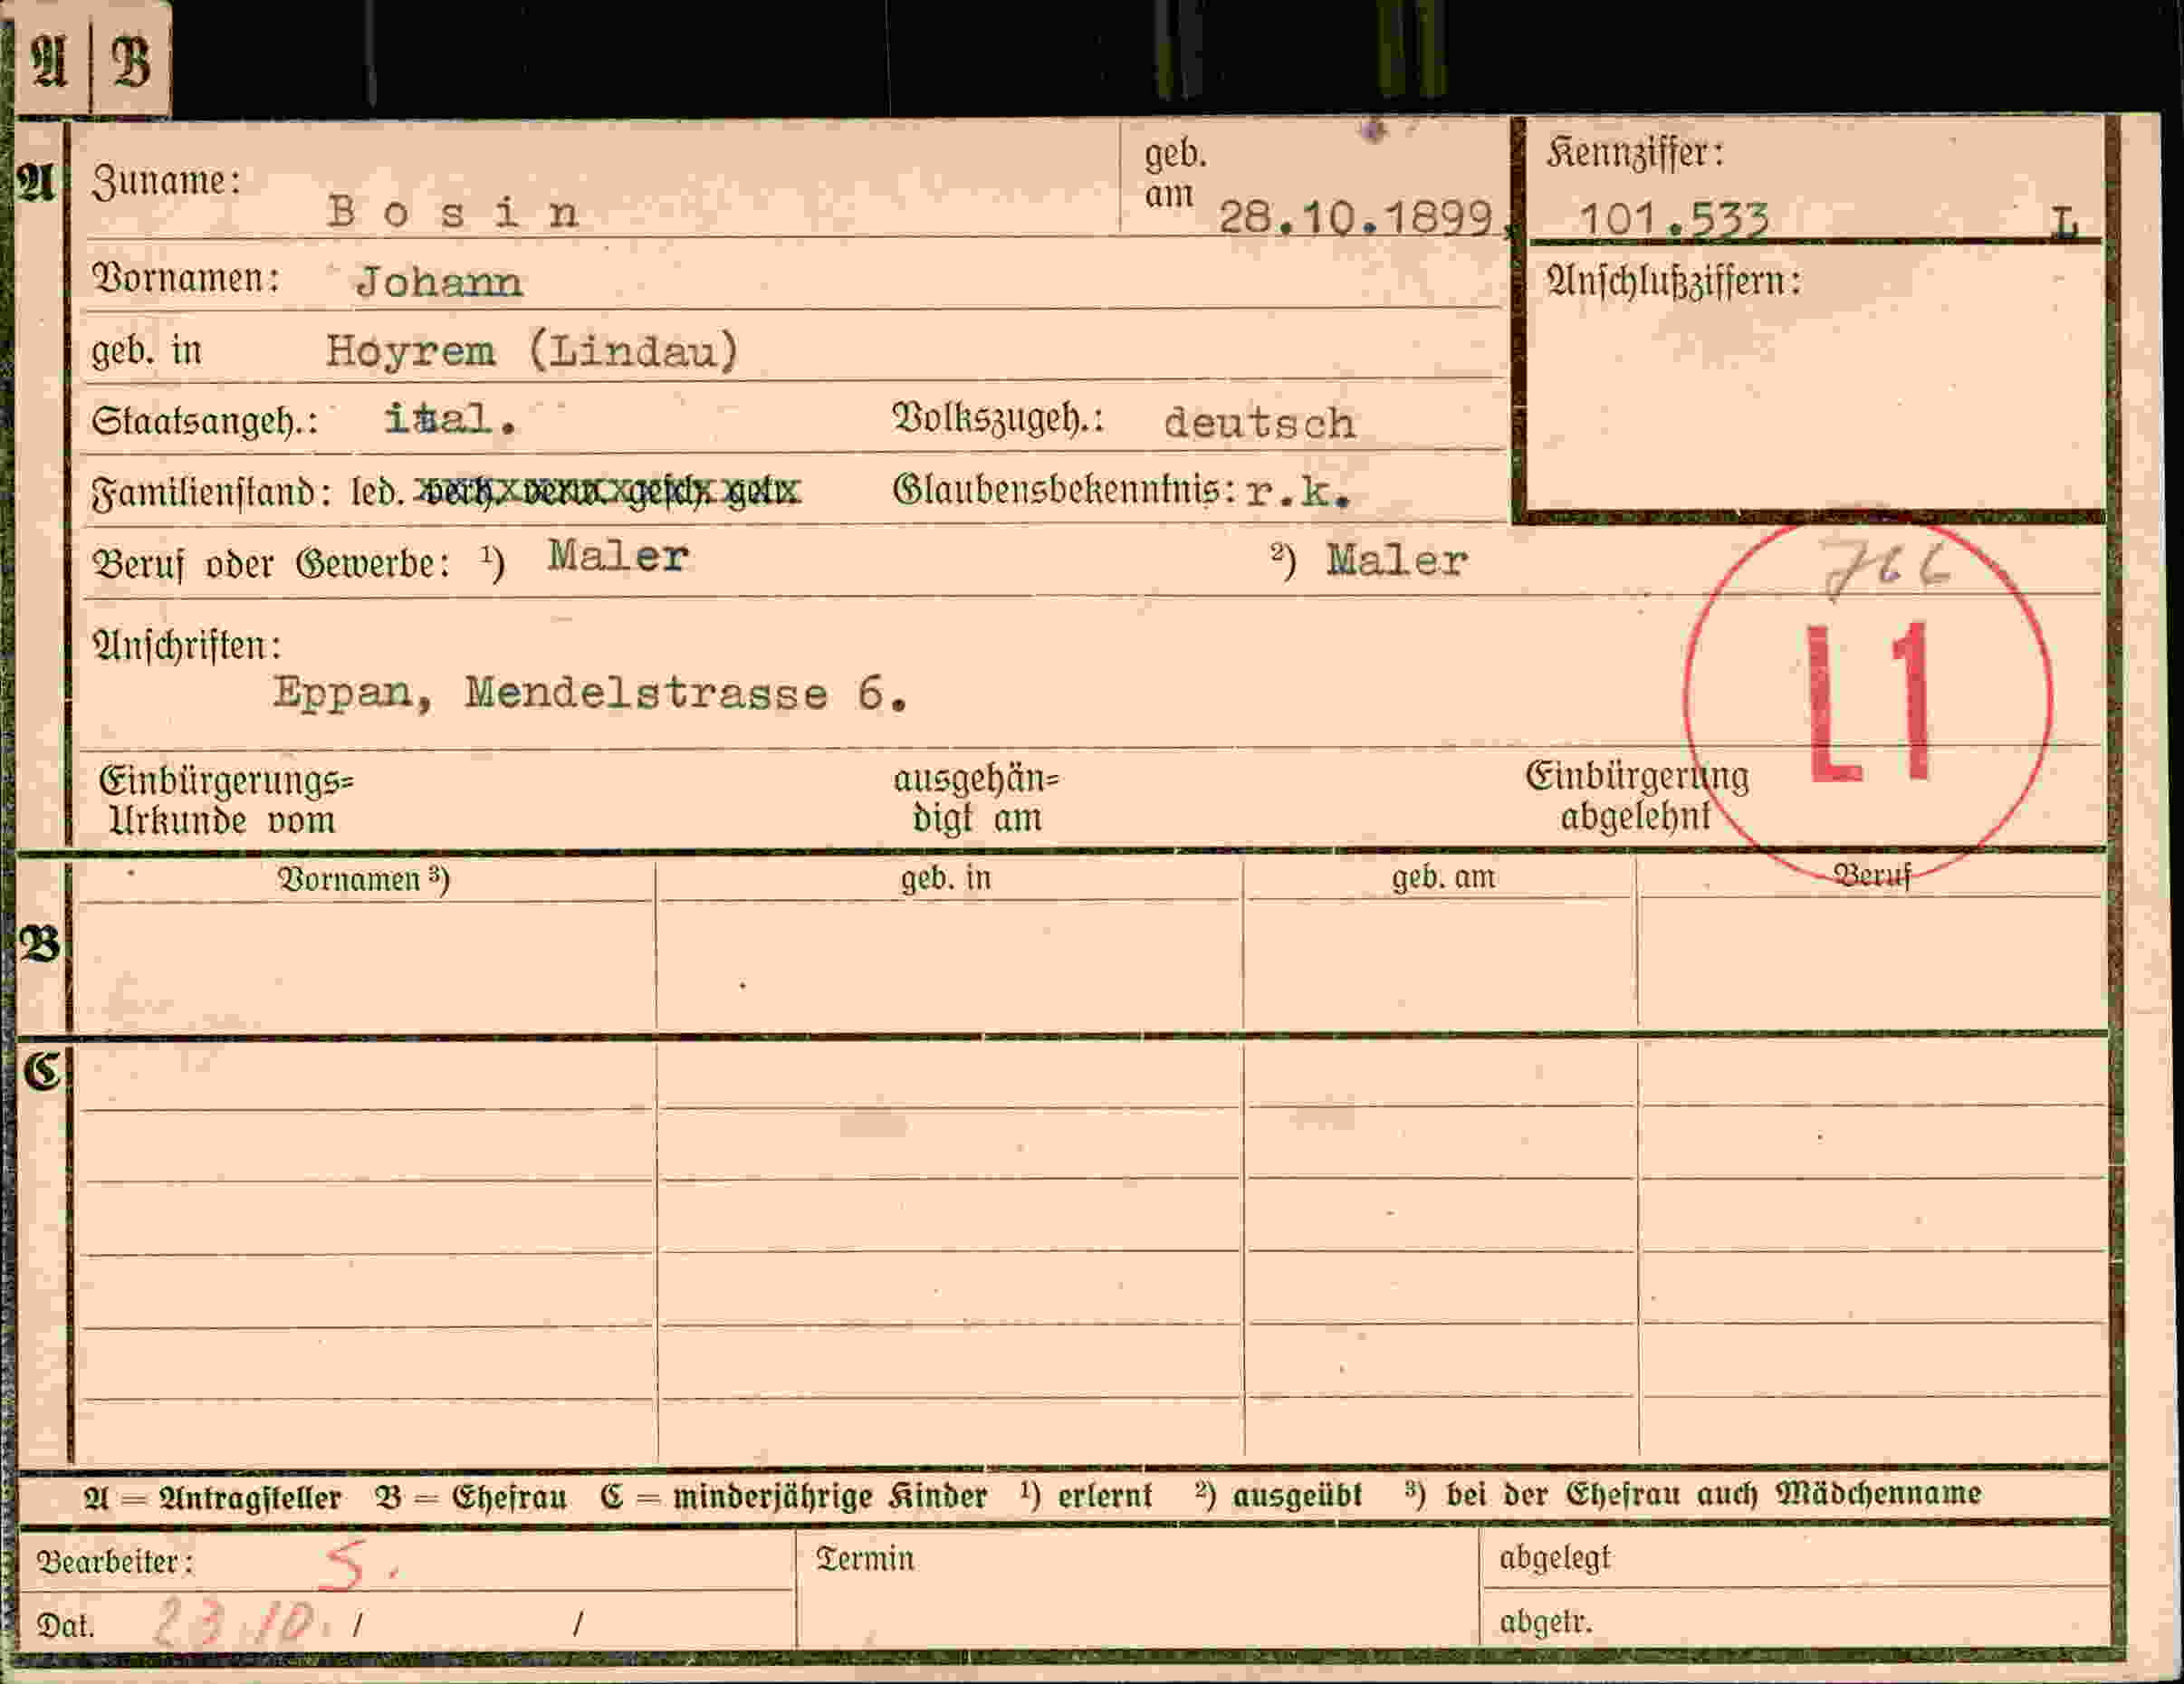 A | B
A Zuname: Bosin geb. am 28.10.1899. Kennziffer: 101.533 L
Vornamen: Johann Anschlußziffern:
geb. in Hoyrem (Lindau)
Staatsangeh.: ital. Volkszugeh.: deutsch
Familienstand: led. verh. verw. gesch. getr. Glaubensbekenntnis: r.k.
Beruf oder Gewerbe: ¹) Maler ²) Maler
Anschriften:
L1
Eppan, Mendelstrasse 6.
Einbürgerungs= ausgehän= Einbürgerung
Urkunde vom digt am abgelehnt
Vornamen ³) geb. in geb. am Beruf
B
C
A = Antragsteller B = Ehefrau C = minderjährige Kinder ¹) erlernt ²) ausgeübt ³) bei der Ehefrau auch Mädchenname
Bearbeiter: S. Termin abgelegt
Dat. 23.10. / / abgetr.